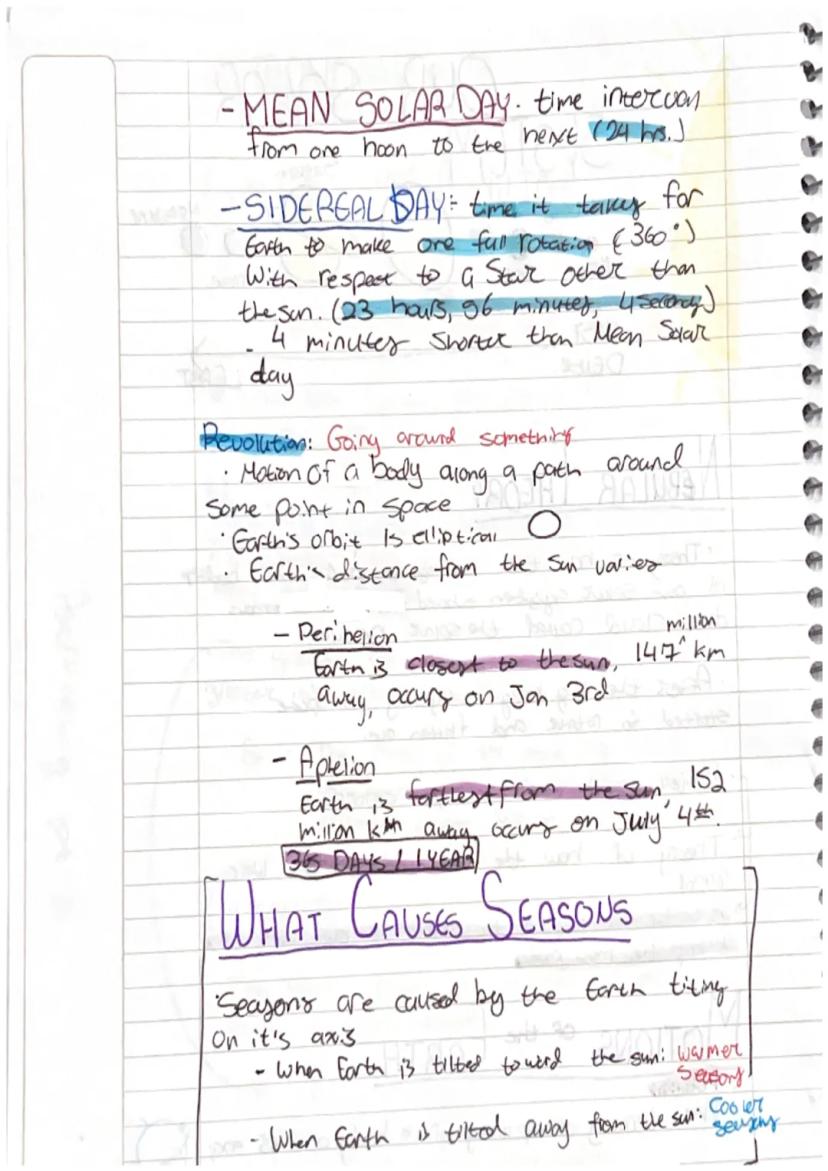 - MEAN SOLAR DAY. time interval
from one noon to the next (24 hrs.)
- SIDEREAL DAY: time it takes for
Earth to make one full rotation (360°)
with respect to a star other than
the sun. (23 hours, 96 minutes, 4 seconds)
- 4 minutes shorter than Mean Solar
day
Revolution: Going around something
· Motion of a body along a path around
some point in space
· Earth's orbit is elliptical
· Earth's distance from the sun varies
- Perihelion
Earth is closest to the sun, 147 ^ million km
away, occurs on Jan 3rd
- Aphelion
Earth is farthest from the sun, 152
million km away, occurs on July 4th.
365 DAYS / 1 YEAR
WHAT CAUSES SEASONS
· Seasons are caused by the Earth titing
on it's axis
- When Earth is tilted toward the sun: warmer
seasons
- When Earth is tilted away from the sun: cooler
seasons